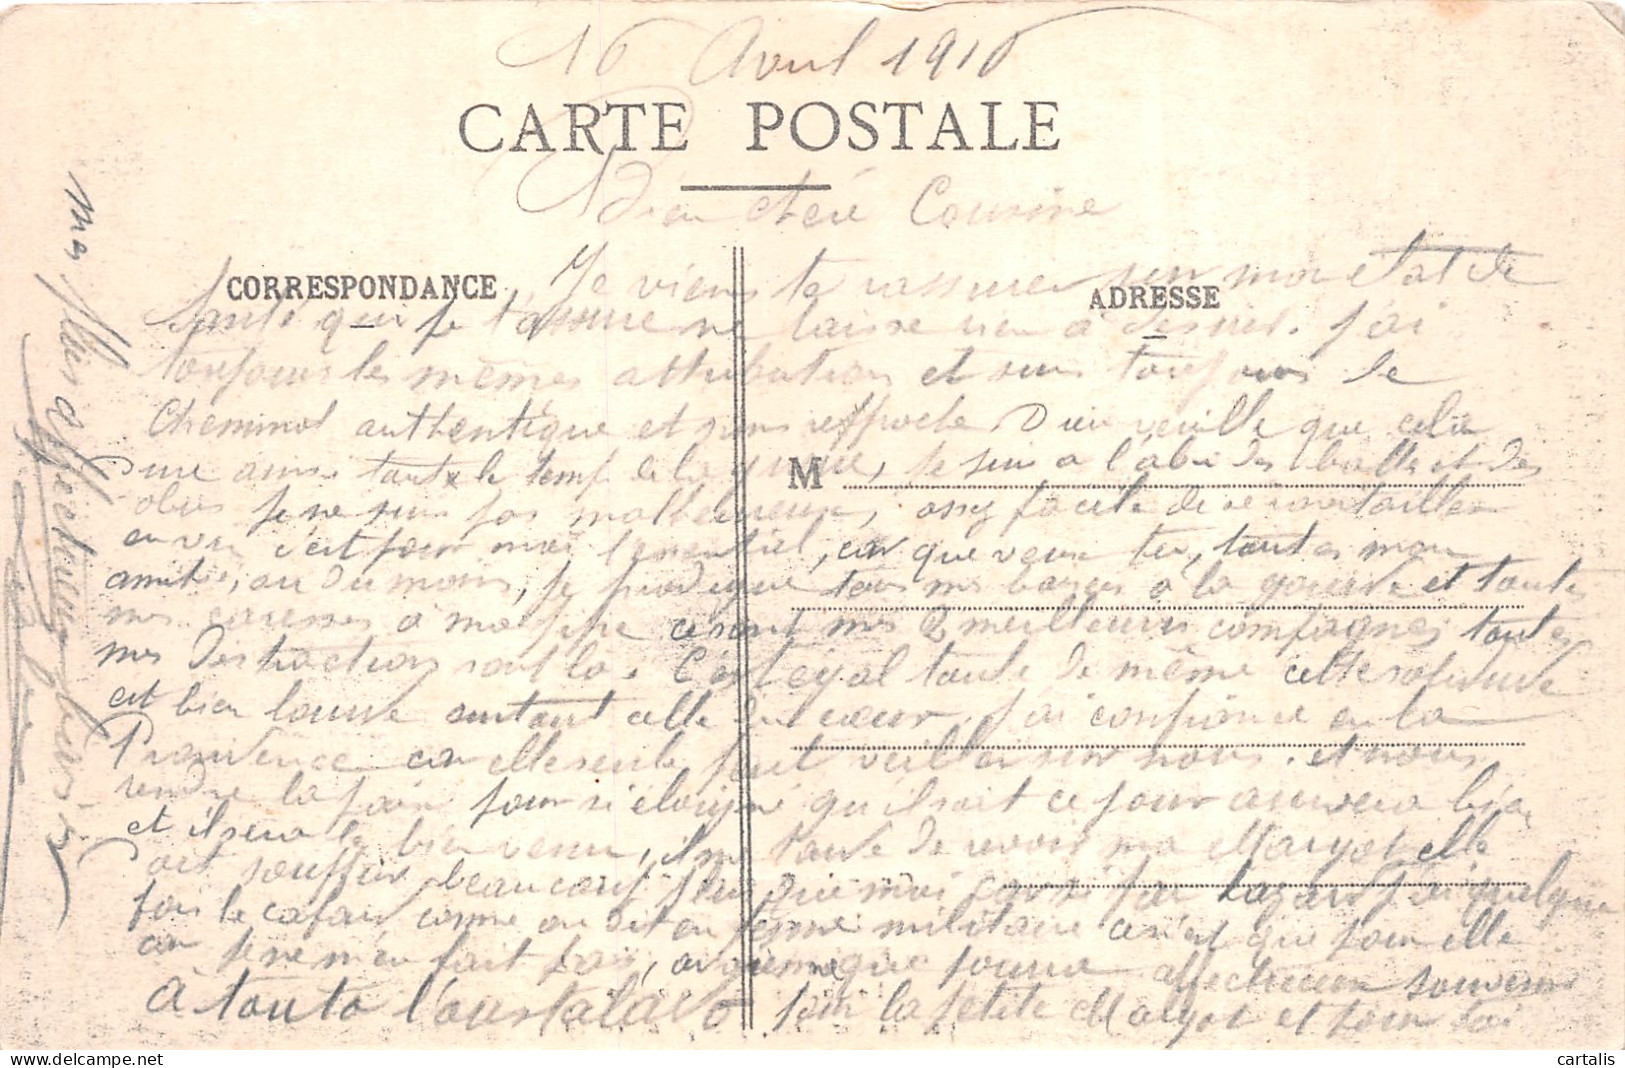 16 Avril 1916
CARTE POSTALE
Bien cheré Cousine
CORRESPONDANCE
ADRESSE
M
Je viens te rassurer sur mon etat de
santé qui je t'assure ne laisse rien a desirer. J'ai
toujours les mêmes attributions et suis toujours le
Cheminot authentique et sans reproche Dieu veuille que cela
dure ainsi tout le temp de la guerre, je suis a l'abri des balles et des
obus je ne suis pas malheureux, assy facile de se ravitailler
en vin c'est pour moi l'essentiel, car que veux tu, toutes mon
amitié, ou du moins, je prodigue tous mes baisers à la gourde et toutes
mes caresses à ma pipe ce sont mes 2 meilleures compagnes toutes
mes distractions sont la. C'est egal tout de même cette
est bien longue surtout celle du cœur. J'ai confiance en la
Providence car elle seule peut veiller sur nous. et nous
rendre la paix pour si éloigné qu'il soit ce jour arrivera bien
et il sera le bien venu, il me tarde de revoir ma Margot elle
doit souffrir beaucoup plus que moi si par hazard j'ai quelque
fois le cafard comme on dit en terme militaire ce n'est que pour elle
car je ne m'en fait pas, affectueux souvenir
à touto l'oustalado pour la petite Margot et pour toi
mes plus affectueux